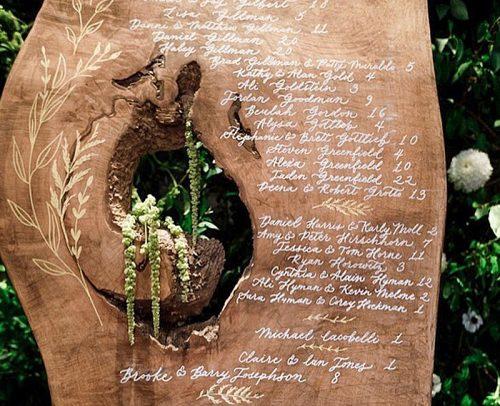 & Jay Gilbert 18
Lisa Gillman 5
Danni & Matthew Gillman 11
Daniel Gillman 20
Haley Gillman 20
Brad Gillman & Patty Muraldo 5
Kathy & Alan Gold 4
Ali Goldstein 3
Jordan Goodman 9
Beulah Gordon 16
Alysa Gotter
Stephanie & Brett Gottlieb 10
Steven Greenfield 4
Alexa Greenfield 10
Jaden Greenfield 22
Deena & Robert Grotto 13
Daniel Harris & Karly Moll 2
Amy & Peter Hirschhorn 7
Jessica & Tom Horne 11
Ryan Horowitz 3
Cynthia & Alain Hyman 12
Ali Hyman & Kevin Melme 2
Shara Hyman & Corey Hochman 1
Michael Iacobelli 1
Claire & Ian Jones 1
Brooke & Barry Josephson 8